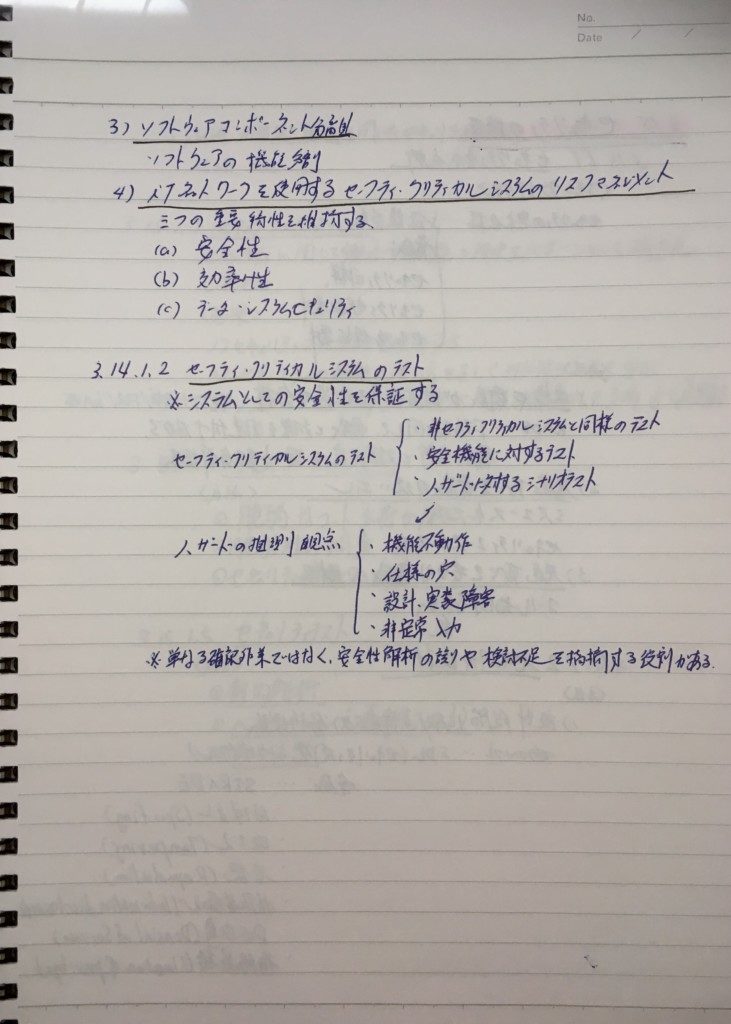 No.
Date / /
3) ソフトウェアコンポーネント分離
ソフトウェアの機能分割
4) ITネットワークを使用するセーフティ・クリティカルシステムのリスクマネジメント
三つの重要特性を維持する、
(a) 安全性
(b) 効率性
(c) データ・システムセキュリティ
3.14.1.2 セーフティ・クリティカルシステムのテスト
※システムとしての安全性を保証する
セーフティ・クリティカルシステムのテスト
・非セーフティクリティカルシステムと同様のテスト
・安全機能に対するテスト
・ハザードに対するシナリオテスト
ハザードの識別観点
・機能不動作
・仕様の穴
・設計、実装障害
・非正常入力
※単なる確認作業ではなく、安全性解析の誤りや検討不足を指摘する役割がある.